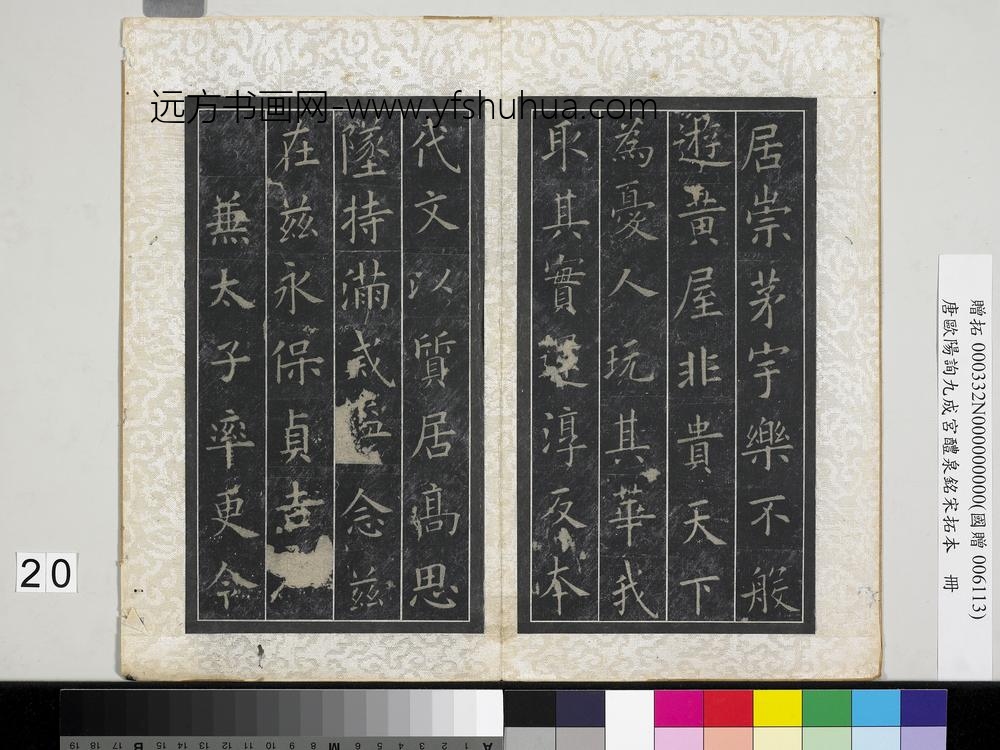 远方书画网-www.yfshuhua.com
居崇茅宇樂不般
遊黃屋非貴天下
為憂人玩其華我
取其實還淳反本
代文以質居高思
墜持滿戒溢念茲
在茲永保貞吉
兼太子率更令
贈拓 000332N000000000(國贈 006113)
唐歐陽詢九成宮醴泉銘宋拓本 冊
20